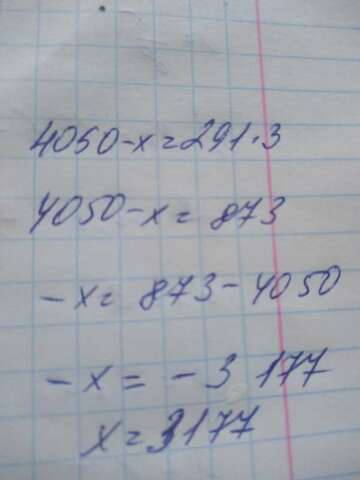 4050-x=291·3
4050-x=873
-x=873-4050
-x=-3177
x=3177